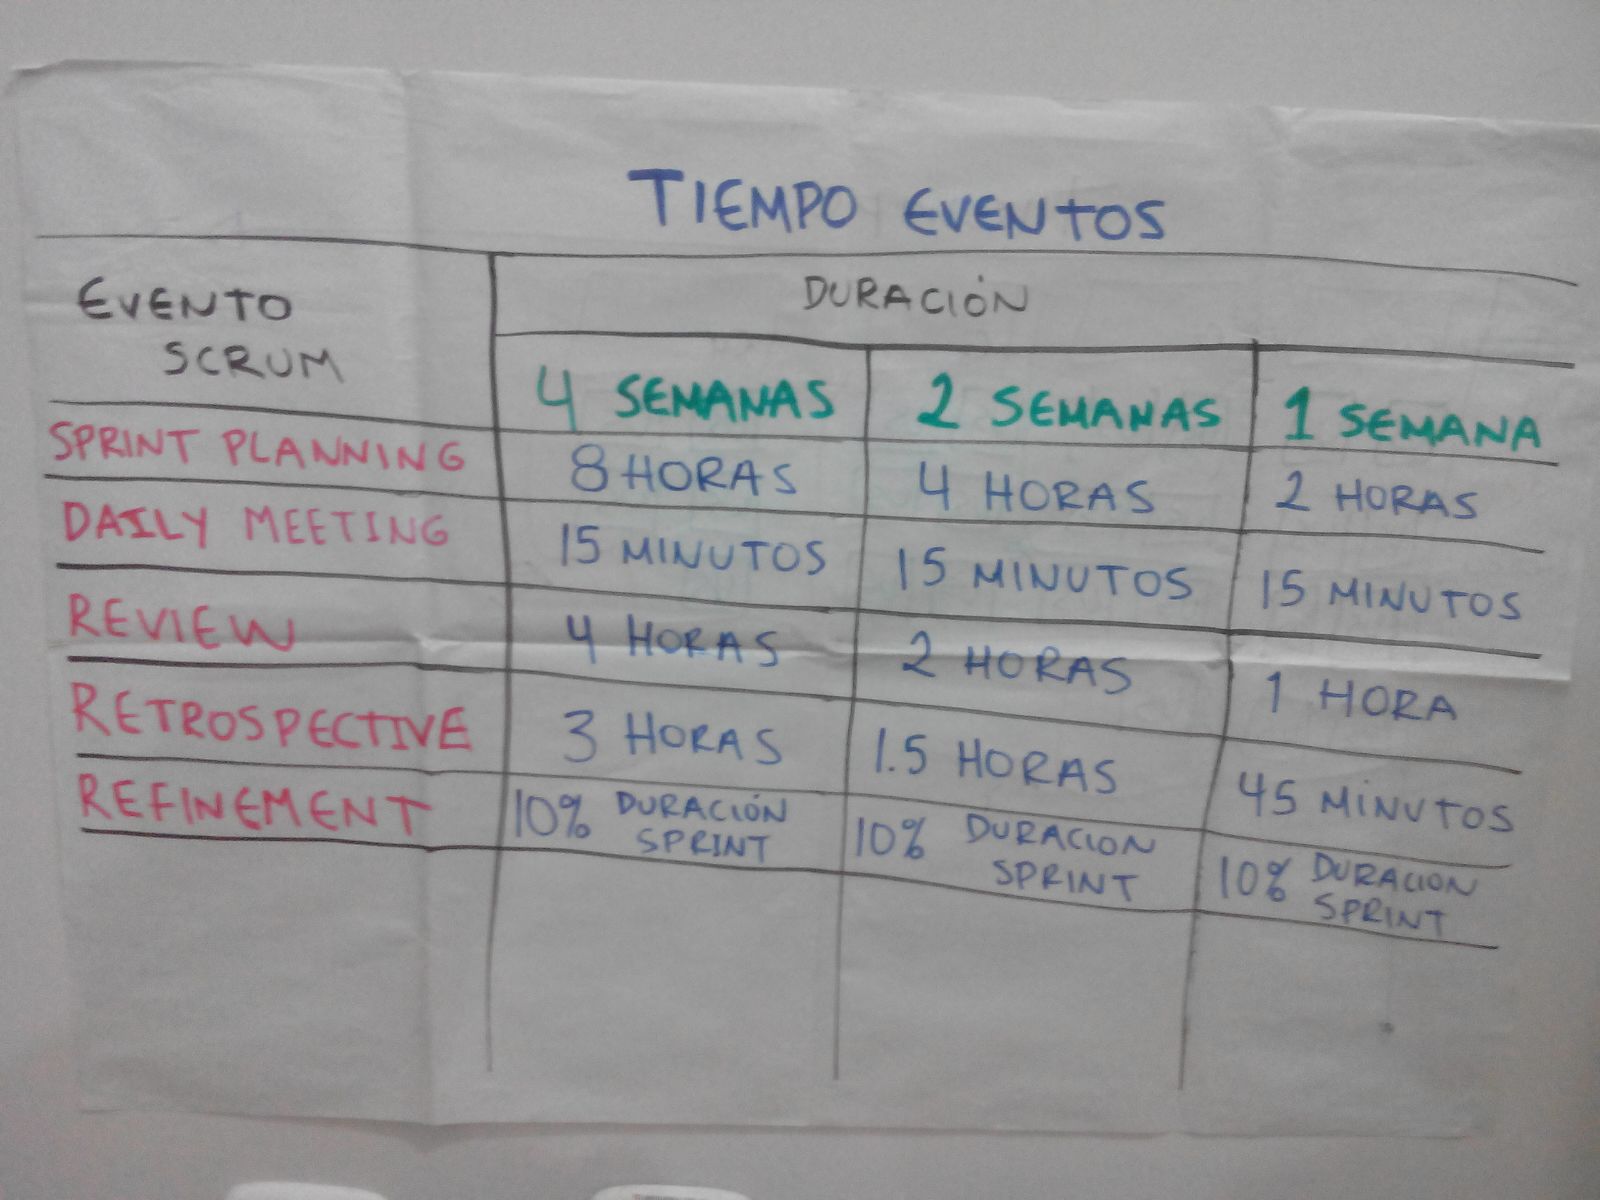 TIEMPO EVENTOS
EVENTO
SCRUM
DURACIÓN
4 SEMANAS 2 SEMANAS 1 SEMANA
SPRINT PLANNING 8 HORAS 4 HORAS 2 HORAS
DAILY MEETING 15 MINUTOS 15 MINUTOS 15 MINUTOS
REVIEW 4 HORAS 2 HORAS 1 HORA
RETROSPECTIVE 3 HORAS 1.5 HORAS 45 MINUTOS
REFINEMENT 10% DURACIÓN SPRINT 10% DURACION SPRINT 10% DURACION SPRINT